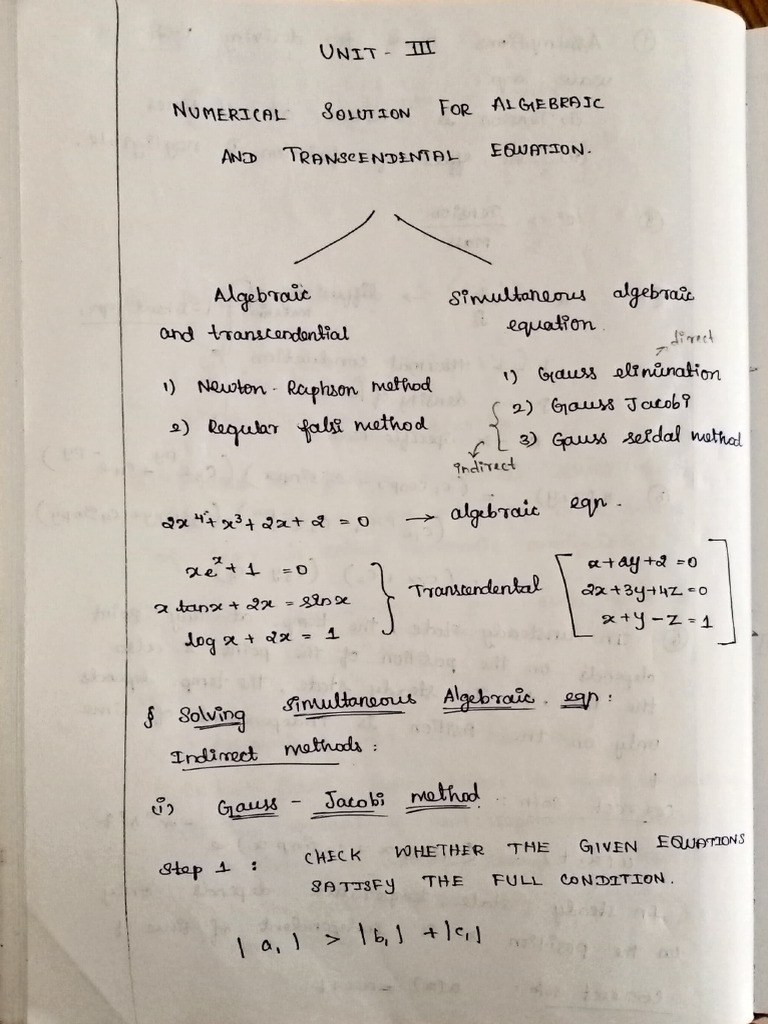 UNIT - III
NUMERICAL SOLUTION FOR ALGEBRAIC
AND TRANSCENDENTAL EQUATION.
Algebraic
and transcendential
1) Newton-Raphson method
2) Regular falsi method
Simultaneous algebraic
equation.
direct
1) Gauss elimination
2) Gauss Jacobi
3) Gauss seidal method
indirect
2x⁴ + x³ + 2x + 2 = 0 → algebraic eqn.
xeˣ + 1 = 0
x tanx + 2x = sinx
log x + 2x = 1
Transcendental
x + 2y + 2 = 0
2x + 3y + 4z = 0
x + y - z = 1
§ Solving Simultaneous Algebraic eqn:
Indirect methods:
(i) Gauss - Jacobi method
Step 1 : CHECK WHETHER THE GIVEN EQUATIONS
SATISFY THE FULL CONDITION.
|a₁| > |b₁| + |c₁|